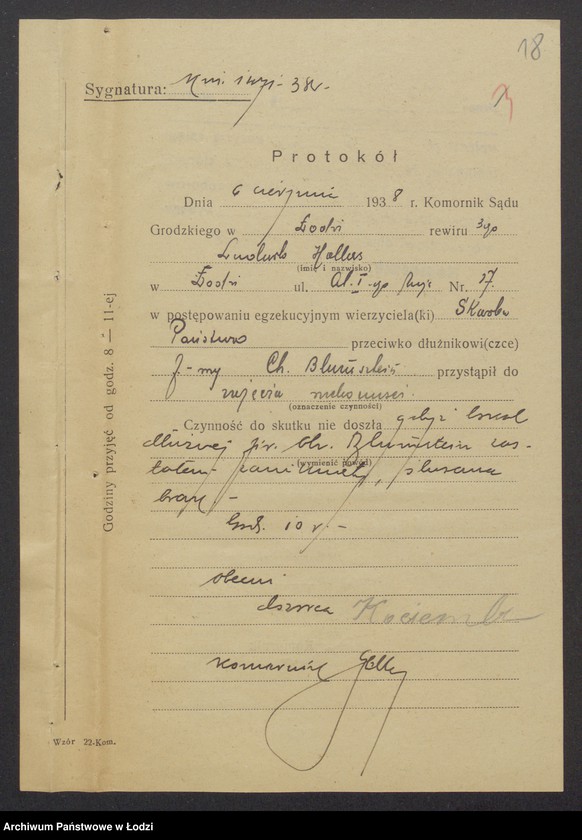 18
Sygnatura:
Protokół
Dnia 6 sierpnia 1938 r. Komornik Sądu
Grodzkiego w Łodzi rewiru 3go
Hallas
(imię i nazwisko)
w Łodzi ul. Al. I-go Maja Nr. 27.
w postępowaniu egzekucyjnym wierzyciela(ki) Skarbu
Państwa przeciwko dłużnikowi(czce)
f-my Ch. Blumsztein przystąpił do
zajęcia ruchomości
(oznaczenie czynności)
Czynność do skutku nie doszła gdyż lokal
dłużnej fir. Ch. Blumstein zas-
(wymienić powód)
tałem zamknięty, ślusarza
brak. -
God. 10 r. -
Obecni
dozorca
Komornik
Godziny przyjęć od godz. 8 — 11-ej
Wzór 22-Kom.
Archiwum Państwowe w Łodzi